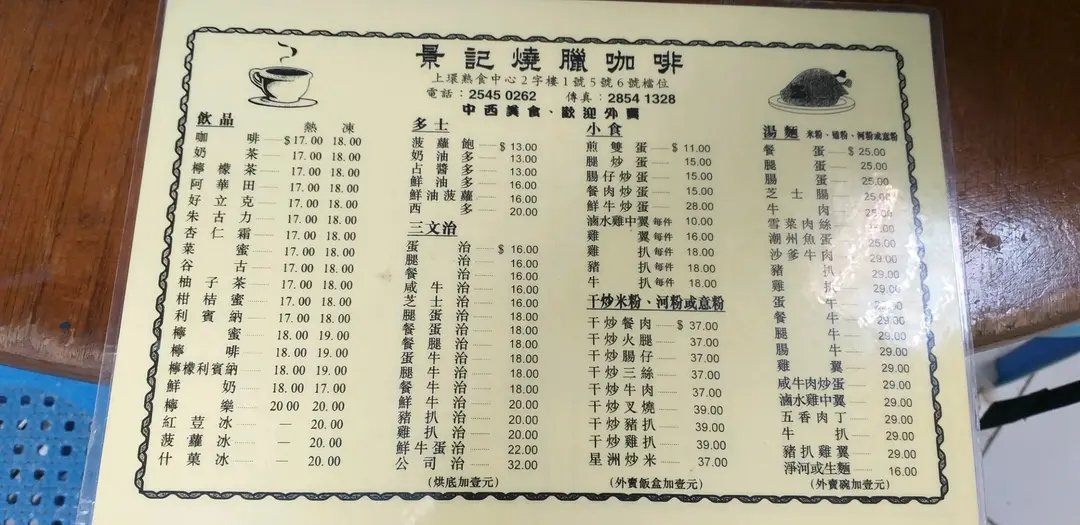 景記燒臘咖啡
上環熟食中心2字樓1號5號6號檔位
電話：2545 0262 傳真：2854 1328
中西美食、歡迎外賣
飲品 熱 凍
咖啡 $17.00 18.00
奶茶 17.00 18.00
檸檬茶 17.00 18.00
阿華田 17.00 18.00
好立克 17.00 18.00
朱古力 17.00 18.00
杏仁霜 17.00 18.00
菜蜜 17.00 18.00
谷古 17.00 18.00
柚子茶 17.00 18.00
柑桔蜜 17.00 18.00
利賓納 17.00 18.00
檸蜜 18.00 19.00
檸啡 18.00 19.00
檸檬利賓納 18.00 19.00
鮮奶 18.00 17.00
檸樂 20.00 20.00
紅荳冰 — 20.00
菠蘿冰 — 20.00
什菓冰 — 20.00
多士
菠蘿飽 $13.00
奶油多 13.00
占醬多 13.00
鮮油多 16.00
鮮油菠蘿 16.00
西多 20.00
三文治
蛋治 $16.00
腿治 16.00
餐治 16.00
咸牛治 16.00
芝士治 16.00
腿蛋治 18.00
餐蛋治 18.00
餐腿治 18.00
蛋牛治 18.00
腿牛治 18.00
餐牛治 18.00
鮮牛治 20.00
豬扒治 20.00
雞扒治 20.00
鮮牛蛋治 22.00
公司治 32.00
(烘底加壹元)
小食
煎雙蛋 $11.00
腿炒蛋 15.00
腸仔炒蛋 15.00
餐肉炒蛋 15.00
鮮牛炒蛋 28.00
滷水雞中翼 每件 10.00
雞翼 每件 16.00
雞扒 每件 18.00
豬扒 每件 18.00
牛扒 每件 18.00
干炒米粉、河粉或意粉
干炒餐肉 $37.00
干炒火腿 37.00
干炒腸仔 37.00
干炒三絲 37.00
干炒牛肉 37.00
干炒叉燒 39.00
干炒豬扒 39.00
干炒雞扒 39.00
星洲炒米 37.00
(外賣飯盒加壹元)
湯麵 米粉、通粉、河粉或意粉
餐蛋 $25.00
腿蛋 25.00
腸蛋 25.00
芝士腸 25.00
牛肉 25.00
雪菜肉絲 25.00
潮州魚蛋 25.00
沙爹牛肉 29.00
豬扒 29.00
雞扒 29.00
蛋牛 29.00
餐牛 29.00
腿牛 29.00
腸牛 29.00
雞翼 29.00
咸牛肉炒蛋 29.00
滷水雞中翼 29.00
五香肉丁 29.00
牛扒 29.00
豬扒雞翼 29.00
淨河或生麵 16.00
(外賣碗加壹元)